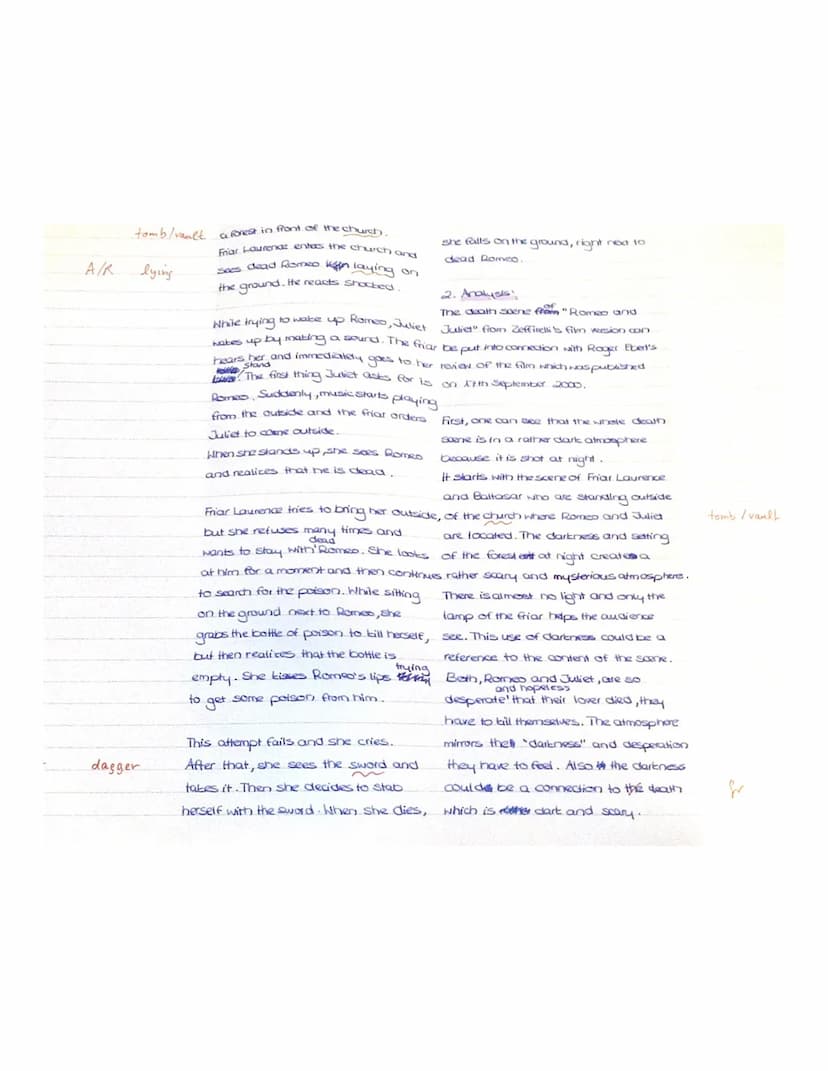 tomb/vault a forest in front of the church.
Friar Laurence enters the church and
A/R lying sees dead Romeo laying on
the ground. He reacts shocked.
While trying to wake up Romeo, Juliet
wakes up by making a sound. The friar
hears her and immediately goes to her
stand
The first thing Juliet asks for is
Romeo. Suddenly, music starts playing
from the outside and the friar orders
Juliet to come outside.
When she stands up, she sees Romeo
and realizes that he is dead.
Friar Laurence tries to bring her outside,
but she refuses many times and
dead
wants to stay with Romeo. She looks
at him for a moment and then continues
to search for the poison. While sitting
on the ground next to Romeo, she
grabs the bottle of poison to kill herself,
but then realizes that the bottle is
trying
empty. She kisses Romeo's lips
to get some poison from him.
This attempt fails and she cries.
dagger After that, she sees the sword and
takes it. Then she decides to stab
herself with the sword. When she dies,
she falls on the ground, right next to
dead Romeo.
2. Analysis:
of
The death scene "Romeo and
Juliet" from Zeffirelli's film version can
be put into connection with Roger Ebert's
review of the film which was published
on 17th September 2000.
First, one can see that the whole death
scene is in a rather dark atmosphere
because it is shot at night.
It starts with the scene of Friar Laurence
and Baltasar who are standing outside
of the church where Romeo and Juliet tomb/vault
are located. The darkness and setting
of the forest at night creates a
rather scary and mysterious atmosphere.
There is almost no light and only the
lamp of the friar helps the audience
see. This use of darkness could be a
reference to the content of the scene.
Both, Romeo and Juliet, are so
and hopeless
desperate that their lover died, they
have to kill themselves. The atmosphere
mirrors the "darkness" and desperation
they have to feel. Also the darkness
could be a connection to the death
which is dark and scary.